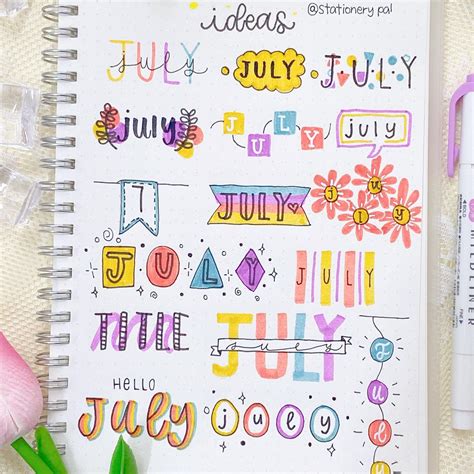 ideas
@stationery pal
JULY JULY JULY
july JULY july
7 JULY July
JULY JULY
TITLE JULY
july
HELLO
July july
July